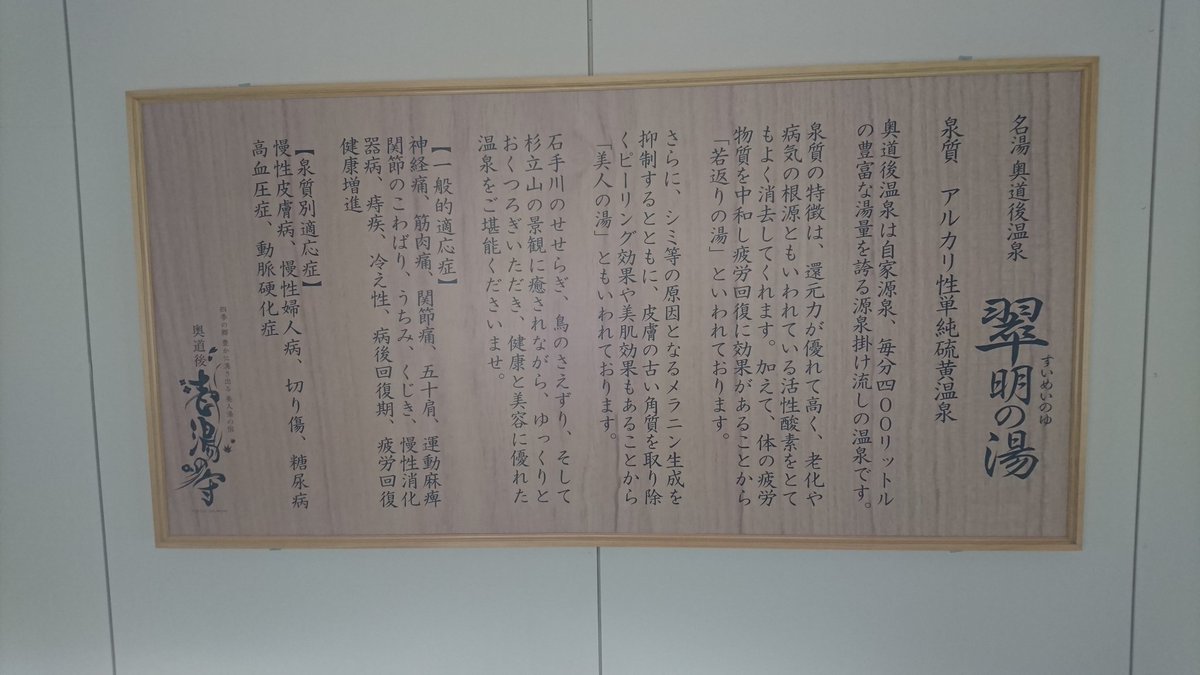 名湯 奥道後温泉 翠明の湯
すいめいのゆ
泉質 アルカリ性単純硫黄温泉
奥道後温泉は自家源泉、毎分四〇〇リットル
の豊富な湯量を誇る源泉掛け流しの温泉です。
泉質の特徴は、還元力が優れて高く、老化や
病気の根源ともいわれている活性酸素をとて
もよく消去してくれます。加えて、体の疲労
物質を中和し疲労回復に効果があることから
「若返りの湯」といわれております。
さらに、シミ等の原因となるメラニン生成を
抑制するとともに、皮膚の古い角質を取り除
くピーリング効果や美肌効果もあることから
「美人の湯」ともいわれております。
石手川のせせらぎ、鳥のさえずり、そして
杉立山の景観に癒されながら、ゆっくりと
おくつろぎいただき、健康と美容に優れた
温泉をご堪能くださいませ。
【一般的適応症】
神経痛、筋肉痛、関節痛、五十肩、運動麻痺
関節のこわばり、うちみ、くじき、慢性消化
器病、痔疾、冷え性、病後回復期、疲労回復
健康増進
【泉質別適応症】
慢性皮膚病、慢性婦人病、切り傷、糖尿病
高血圧症、動脈硬化症
四季の郷 豊かに湧き出る 美人湯の宿
奥道後 壱湯の守